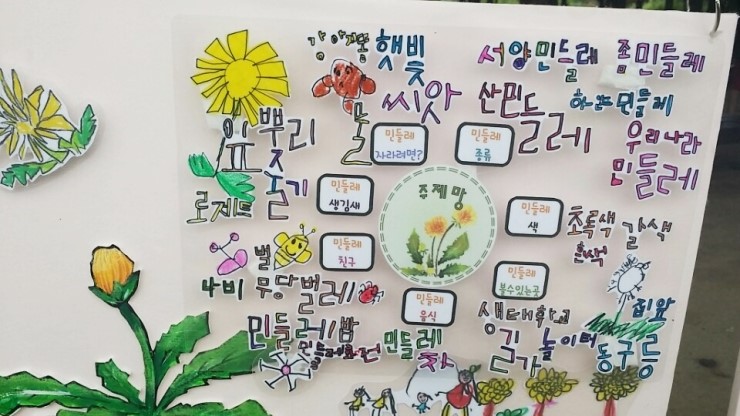 주제망
민들레
자라려면?
강아지똥
햇빛
씨앗
물
민들레
종류
서양민들레
좀민들레
산민들레
하얀민들레
우리나라
민들레
민들레
생김새
잎
뿌리
줄기
로제트
민들레
색
초록색
갈색
흰색
민들레
친구
벌
나비
무당벌레
민들레
음식
민들레밥
민들레화전
민들레
차
민들레
볼수있는곳
생태학교
길가
놀이터
집앞
동구릉